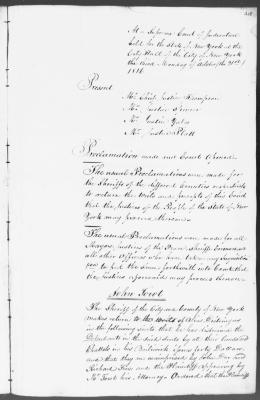 At a Supreme Court of Judicature
held for the State of New York at the
City Hall of the City of New York
the third Monday of October the 21st
1816
Present
Mr Chief Justice Thompson
Mr Justice Spencer
Mr Justice Yates
Mr Justice Platt
Proclamation made and Court opened
The usual Proclamations were made for
the Sheriffs of the different Counties
to return the writs and precepts of this Court
that the Justices of the People of the State of New
York may proceed thereon
The usual Proclamations were made for all
Mayors, Justices of the Peace, Sheriffs, Coroners
all other Officers who have taken any
to put the same forthwith into Court that
the Justices may proceed thereon
John
The Sheriff of the City and County of New York
makes return to the writs of
in the following suits that he has
Defendants in the said suits by all their Goods and
Chattels in his Bailiwick Forty Dollars
and that they are mainprised by John Doe and
Richard Roe and the Plaintiff appearing by
Mr his Attorney Ordered that the